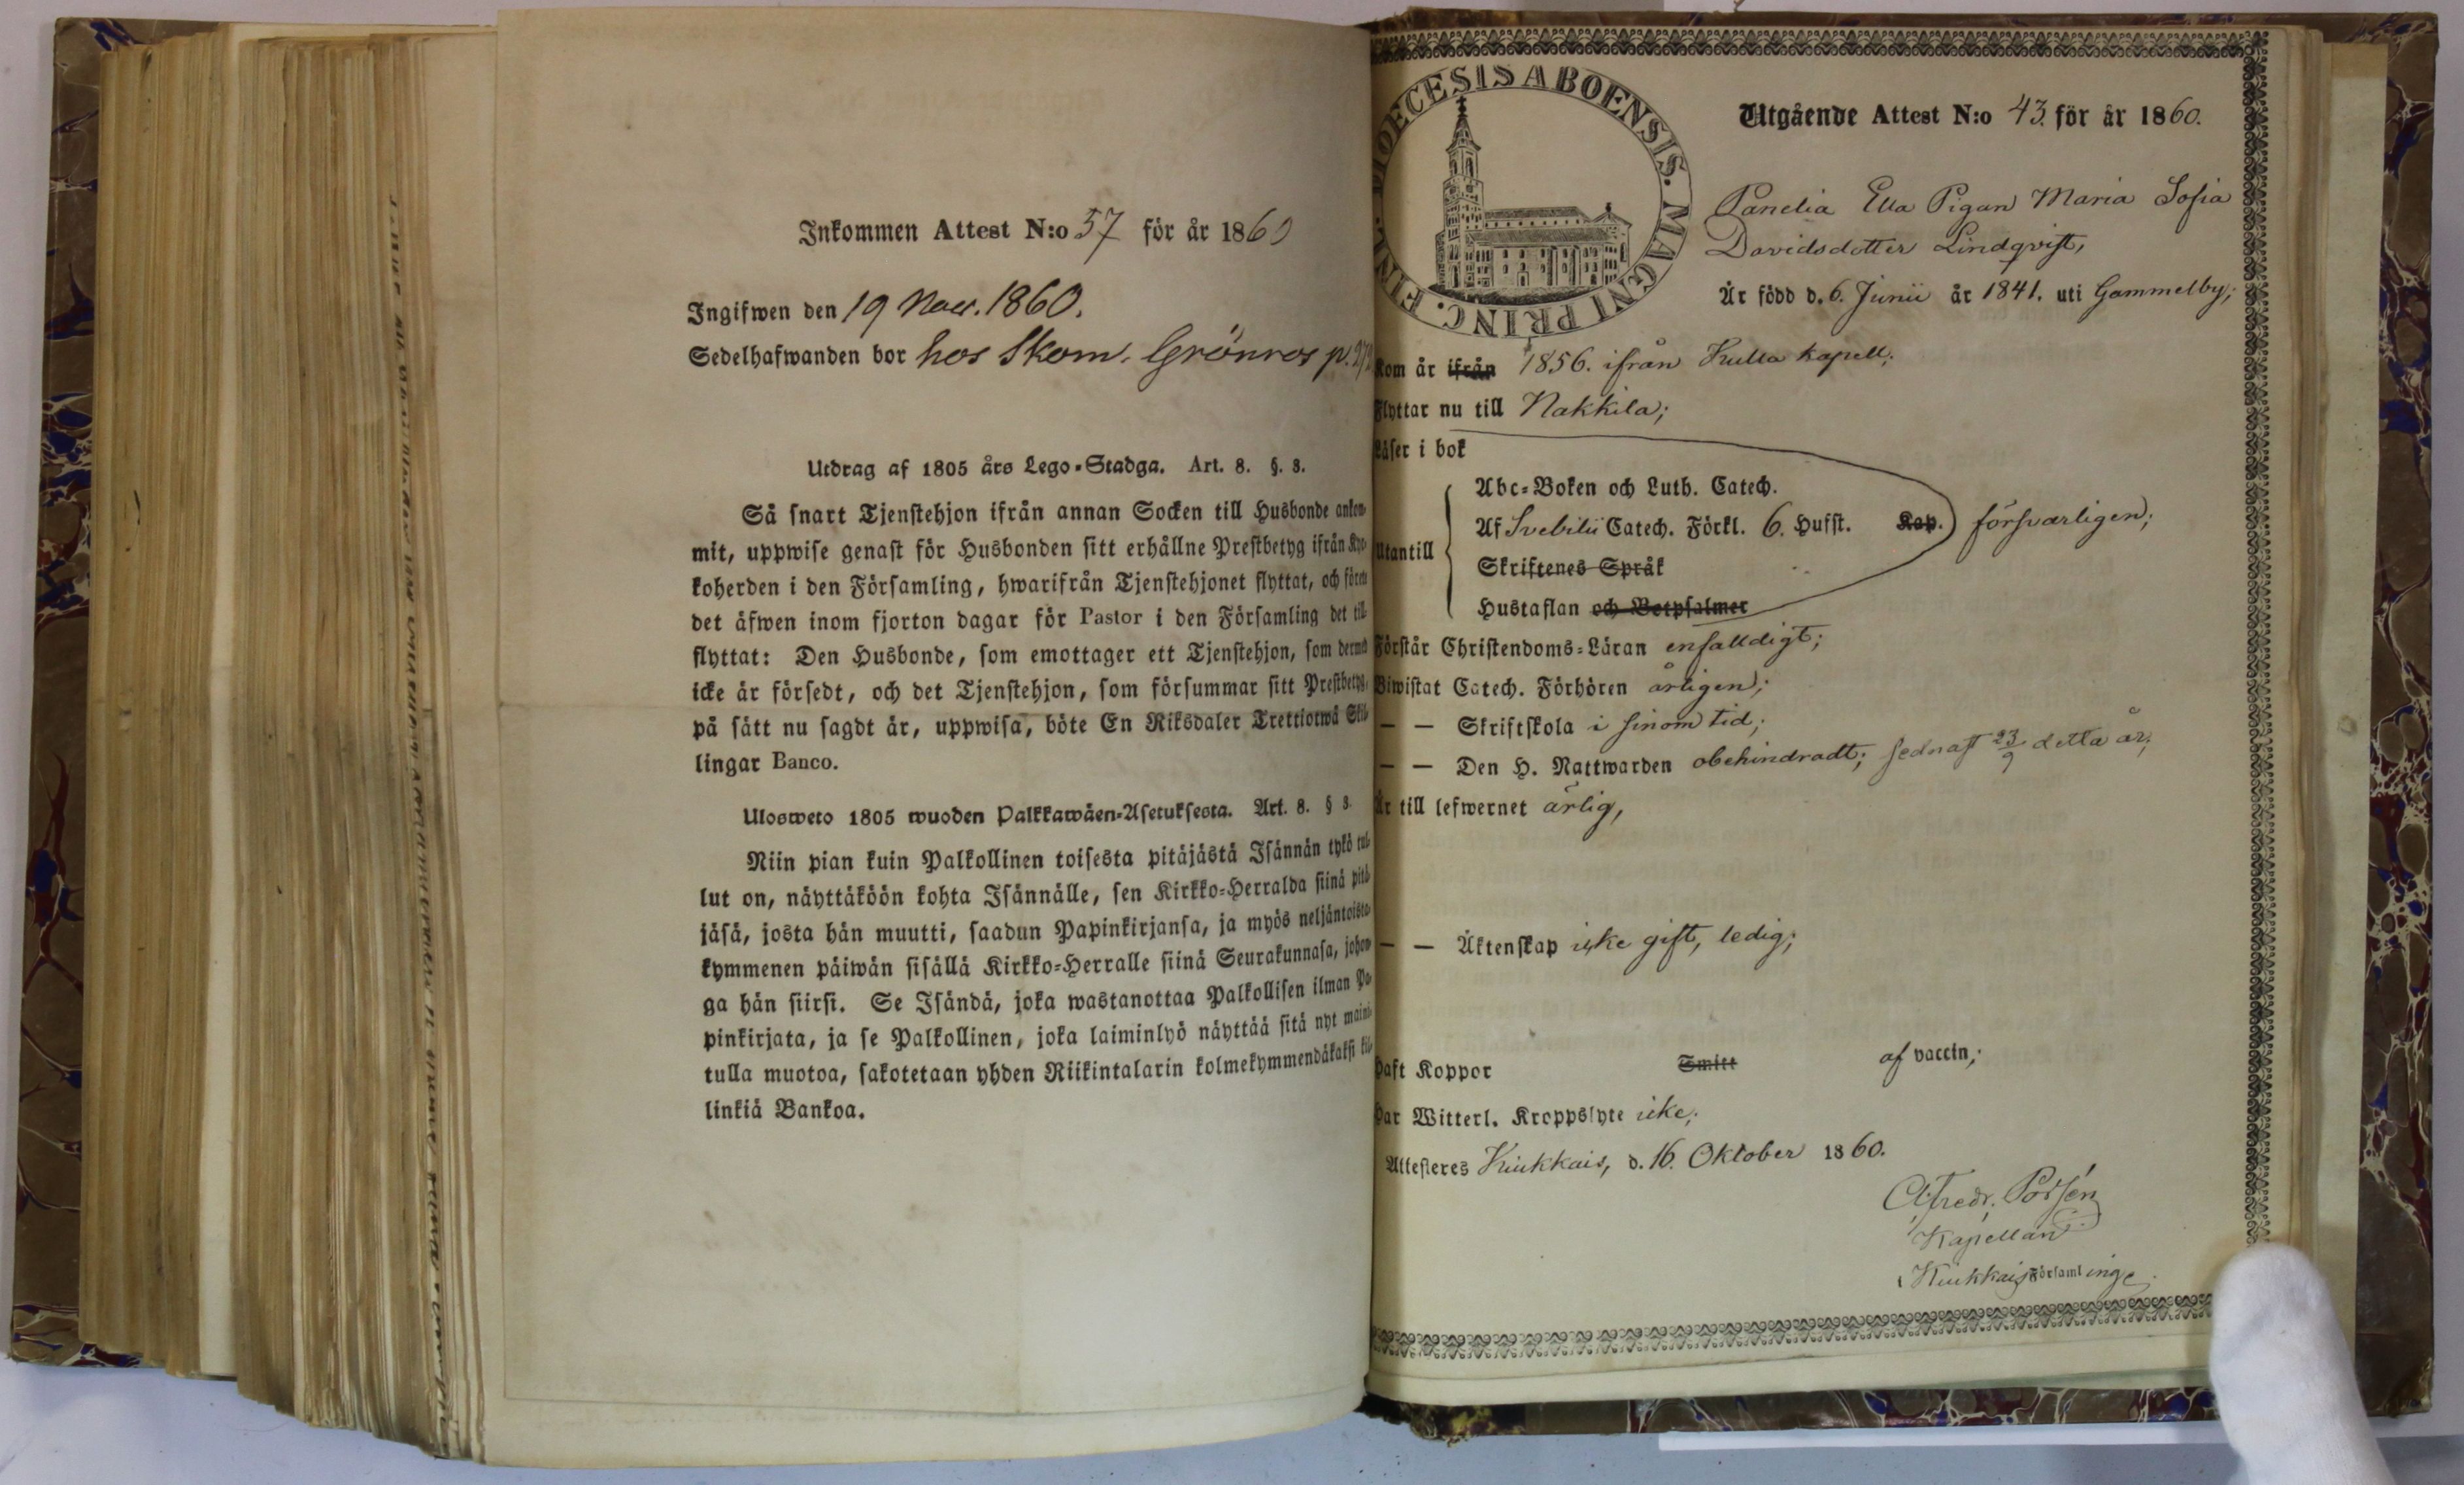 Inkommen Attest N:o 57 för år 1860
Ingifwen den 19 Nov. 1860.
Sedelhafwanden bor hos Skom. Grönros p.
Utdrag af 1805 års Lego-Stadga. Art. 8. §. 8.
Så snart Tjenstehjon ifrån annan Socken till Husbonde ankom-
mit, uppwise genast för Husbonden sitt erhållne Prestbetyg ifrån Kyr-
koherden i den Församling, hwarifrån Tjenstehjonet flyttat, och förete
det äfwen inom fjorton dagar för Pastor i den Församling det till-
flyttat: Den Husbonde, som emottager ett Tjenstehjon, som dermed
icke är försedt, och det Tjenstehjon, som försummar sitt Prestbetyg,
på sätt nu sagdt är, uppwisa, böte En Riksdaler Trettiotwå Skil-
lingar Banco.
Ulosweto 1805 wuoden Palkkawäen-Asetuksesta. Art. 8. § 8.
Niin pian kuin Palkollinen toisesta pitäjästä Isännän tykö tul-
lut on, näyttäköön kohta Isännälle, sen Kirkko-Herralda siinä pitä-
jäsä, josta hän muutti, saadun Papinkirjansa, ja myös neljäntoista-
kymmenen päiwän sisällä Kirkko-Herralle siinä Seurakunnasa, johon-
ga hän siirsi. Se Isändä, joka wastanottaa Palkollisen ilman Pa-
pinkirjata, ja se Palkollinen, joka laiminlyö näyttää sitä nyt maini-
tulla muotoa, sakotetaan yhden Riikintalarin kolmekymmendäkaksi kil-
linkiä Bankoa.
DIOECESIS ABOENSIS. MAGNI PRINC. FINL.
Utgående Attest N:o 43. för år 1860.
Panelia Ella Pigan Maria Sofia
Davidsdotter Lindqvist,
Är född d. 6. Junii år 1841. uti Gammelby;
Kom år ifrån 1856. ifrån Kulla kapell;
Flyttar nu till Nakkila;
Läser i bok
Abc-Boken och Luth. Catech.
Utantill Af Svebilii Catech. Förkl. 6. Hufst. Kap. försvarligen;
Skriftenes Språk
Hustaflan och Botpsalmer
Förstår Christendoms-Läran enfalldigt;
Biwistat Catech. Förhören årligen;
— — Skriftskola i sinom tid;
— — Den H. Nattwarden obehindradt; sednast 23/9 detta år;
Är till lefwernet ärlig,
— — Äktenskap icke gift, ledig;
Haft Koppor Smitt af vaccin;
Har Witterl. Kroppslyte icke;
Attesteres Kiukkais, d. 16. Oktober 1860.
Alfredr. Porsén
Kapellan i
Kiukkais Församlinge.